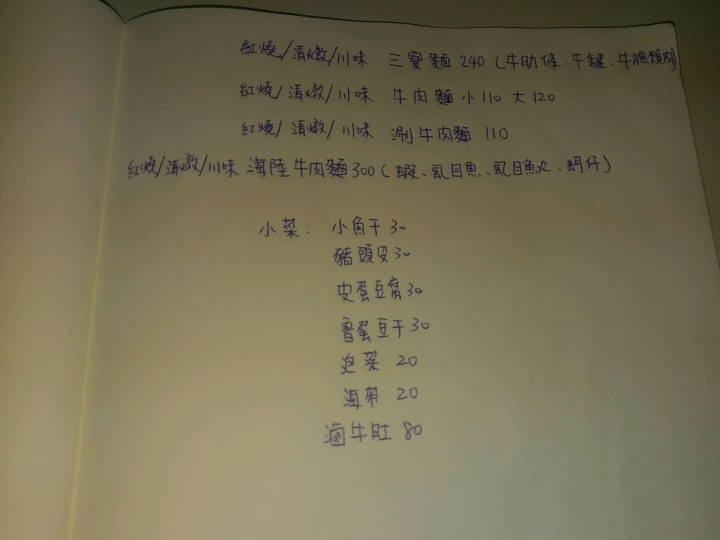 紅燒/清燉/川味 三寶麵 240 (牛肋條、牛腱、牛臉頰肉)
紅燒/清燉/川味 牛肉麵 小110 大120
紅燒/清燉/川味 涮牛肉麵 110
紅燒/清燉/川味 海陸牛肉麵300(蝦、虱目魚、虱目魚丸、蚵仔)
小菜: 小角干30
豬頭皮30
皮蛋豆腐30
魯蛋豆干30
泡菜 20
海帶 20
滷牛肚 80